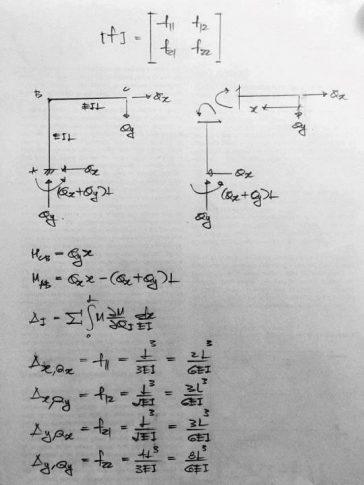 [f] = [ f11 f12
f21 f22 ]
B EIL C Qx
Qy
EIL
A Qx
(Qx+Qy)L
Qy
x Qx
Qy
Qx
(Qx+Qy)L
Qy
M_CB = Qy x
M_AB = Qx x - (Qx + Qy) L
Δ_I = Σ ∫₀^L M ∂M/∂Q_I dx/EI
Δx,Qx = f11 = L³/3EI = 2L³/6EI
Δx,Qy = f12 = L³/2EI = 3L³/6EI
Δy,Qx = f21 = L³/2EI = 3L³/6EI
Δy,Qy = f22 = 4L³/3EI = 8L³/6EI